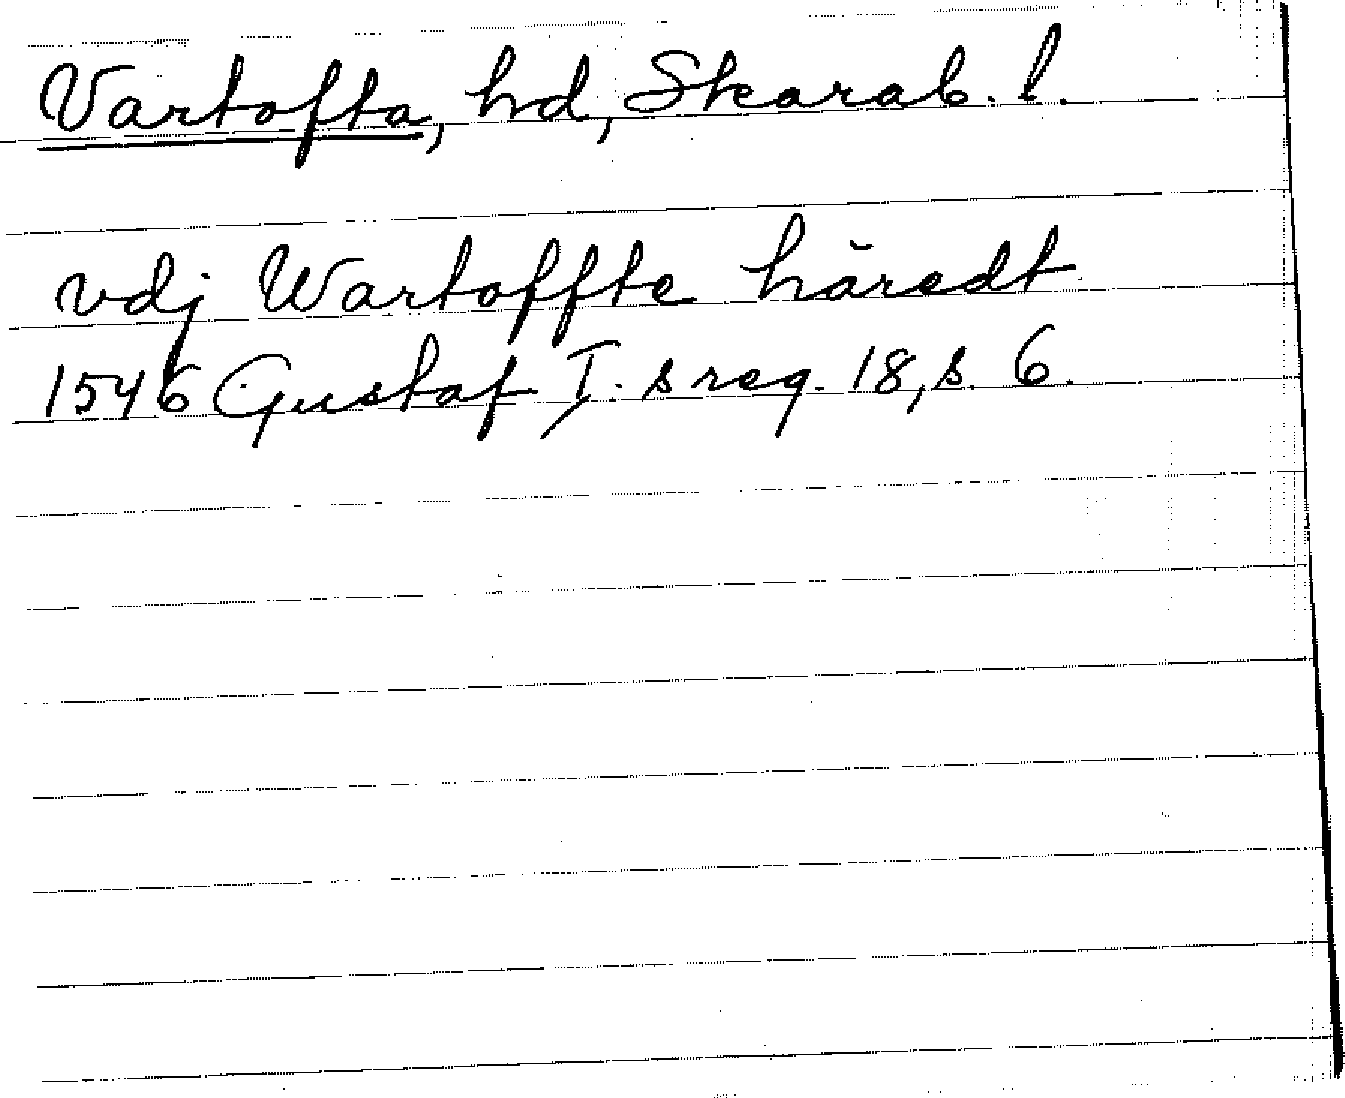 Vartofta, hd, Skarab. l.
vdj Wartoffte häredt
1546 Gustaf I. s reg. 18, s. 6.